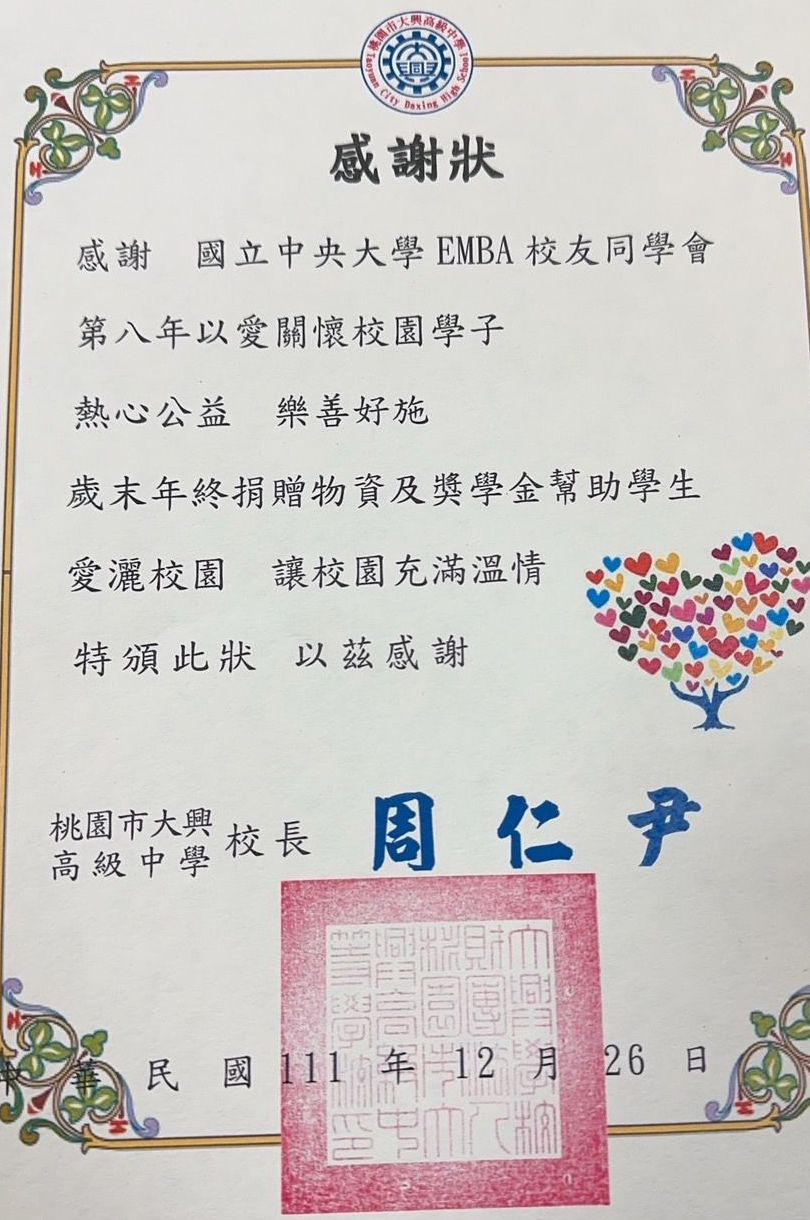 桃園市大興高級中學
Taoyuan City Daxing High School
感謝狀
感謝 國立中央大學 EMBA 校友同學會
第八年以愛關懷校園學子
熱心公益 樂善好施
歲末年終捐贈物資及獎學金幫助學生
愛灑校園 讓校園充滿溫情
特頒此狀 以茲感謝
桃園市大興
高級中學 校長 周仁尹
中華民國 111 年 12 月 26 日